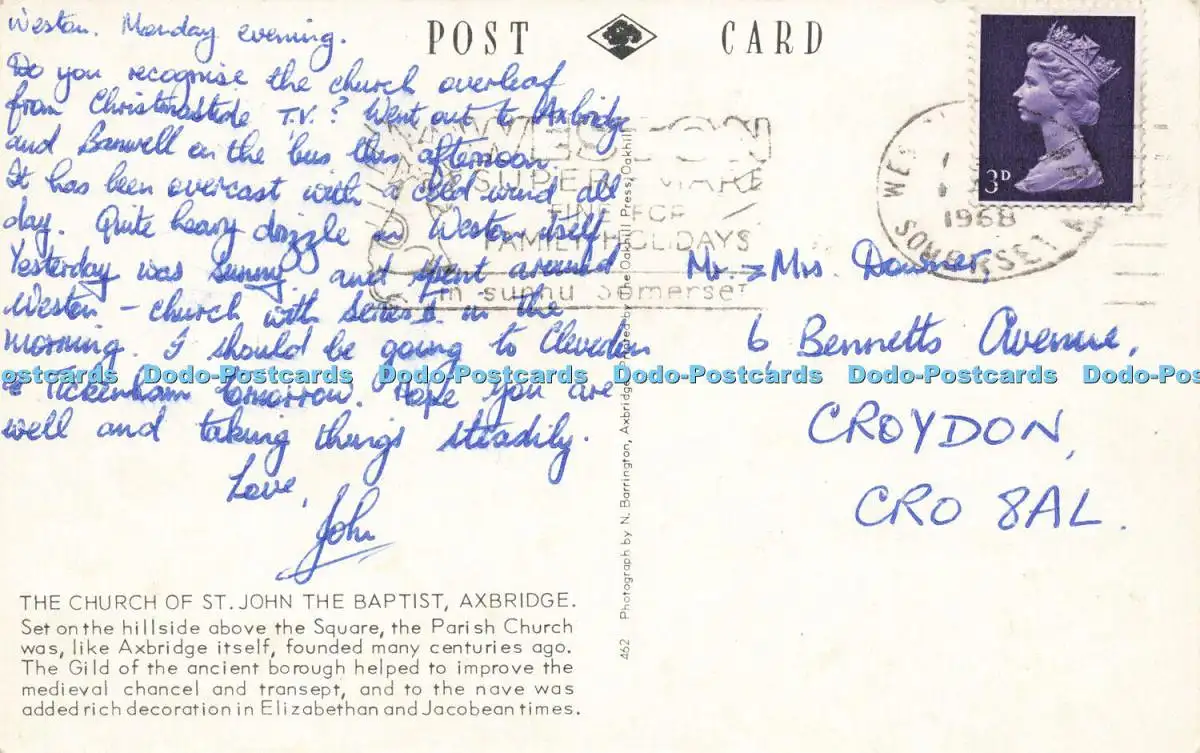 Weston. Monday evening.
Do you recognise the church overleaf
from Christmastide T.V.? Went out to Axbridge
and Banwell on the bus this afternoon
It has been overcast with a cold wind all
day. Quite heavy drizzle in Weston itself
Yesterday was sunny and spent around
Weston - church with in the
morning. I should be going to Clevedon
& Tickenham tomorrow. Hope you are
well and taking things steadily.
Love,
John
THE CHURCH OF ST. JOHN THE BAPTIST, AXBRIDGE.
Set on the hillside above the Square, the Parish Church
was, like Axbridge itself, founded many centuries ago.
The Gild of the ancient borough helped to improve the
medieval chancel and transept, and to the nave was
added rich decoration in Elizabethan and Jacobean times.
POST CARD
462 Photograph by N. Barrington, Axbridge. Printed by The Oakhill Press, Oakhill
WESTON
SUPER MARE
FINE FOR
FAMILY HOLIDAYS
in sunny Somerset
3D
1968
SOMERSET
Mr. & Mrs. Downer,
6, Bennetts Avenue,
CROYDON,
CRO 8AL.
Dodo-Postcards Dodo-Postcards Dodo-Postcards Dodo-Postcards Dodo-Postcards